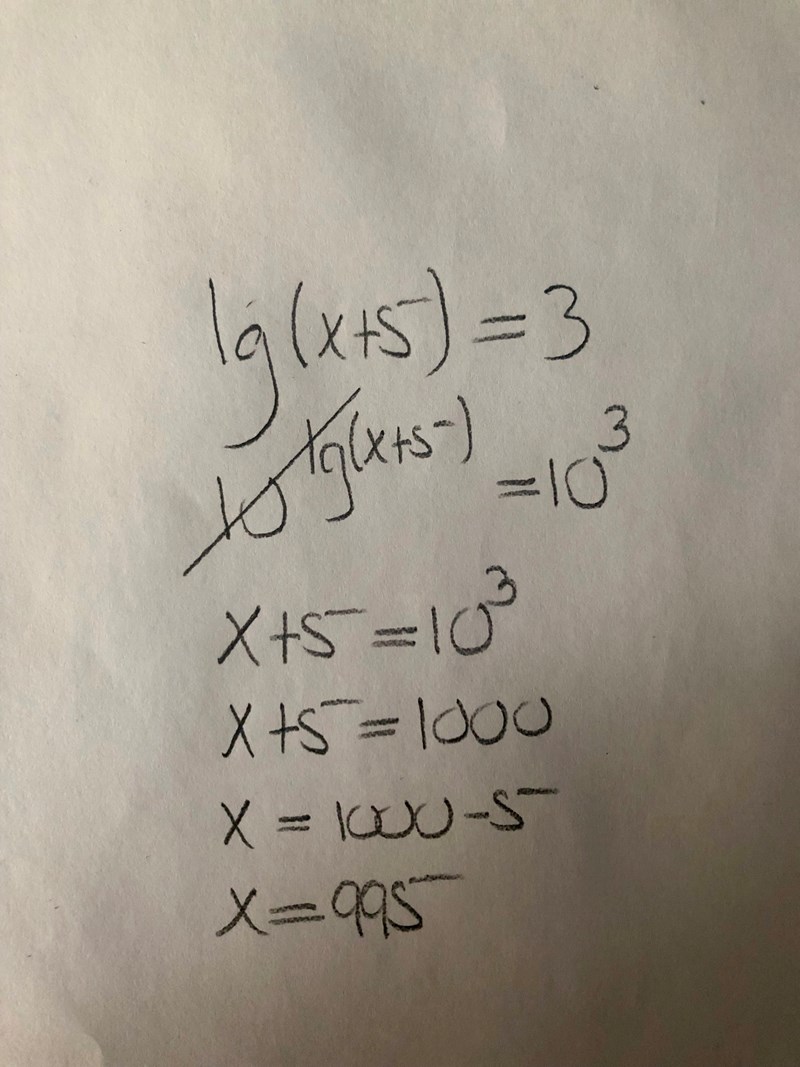 lg(x+5)=3
10^lg(x+5)=10^3
x+5=10^3
x+5=1000
x=1000-5
x=995